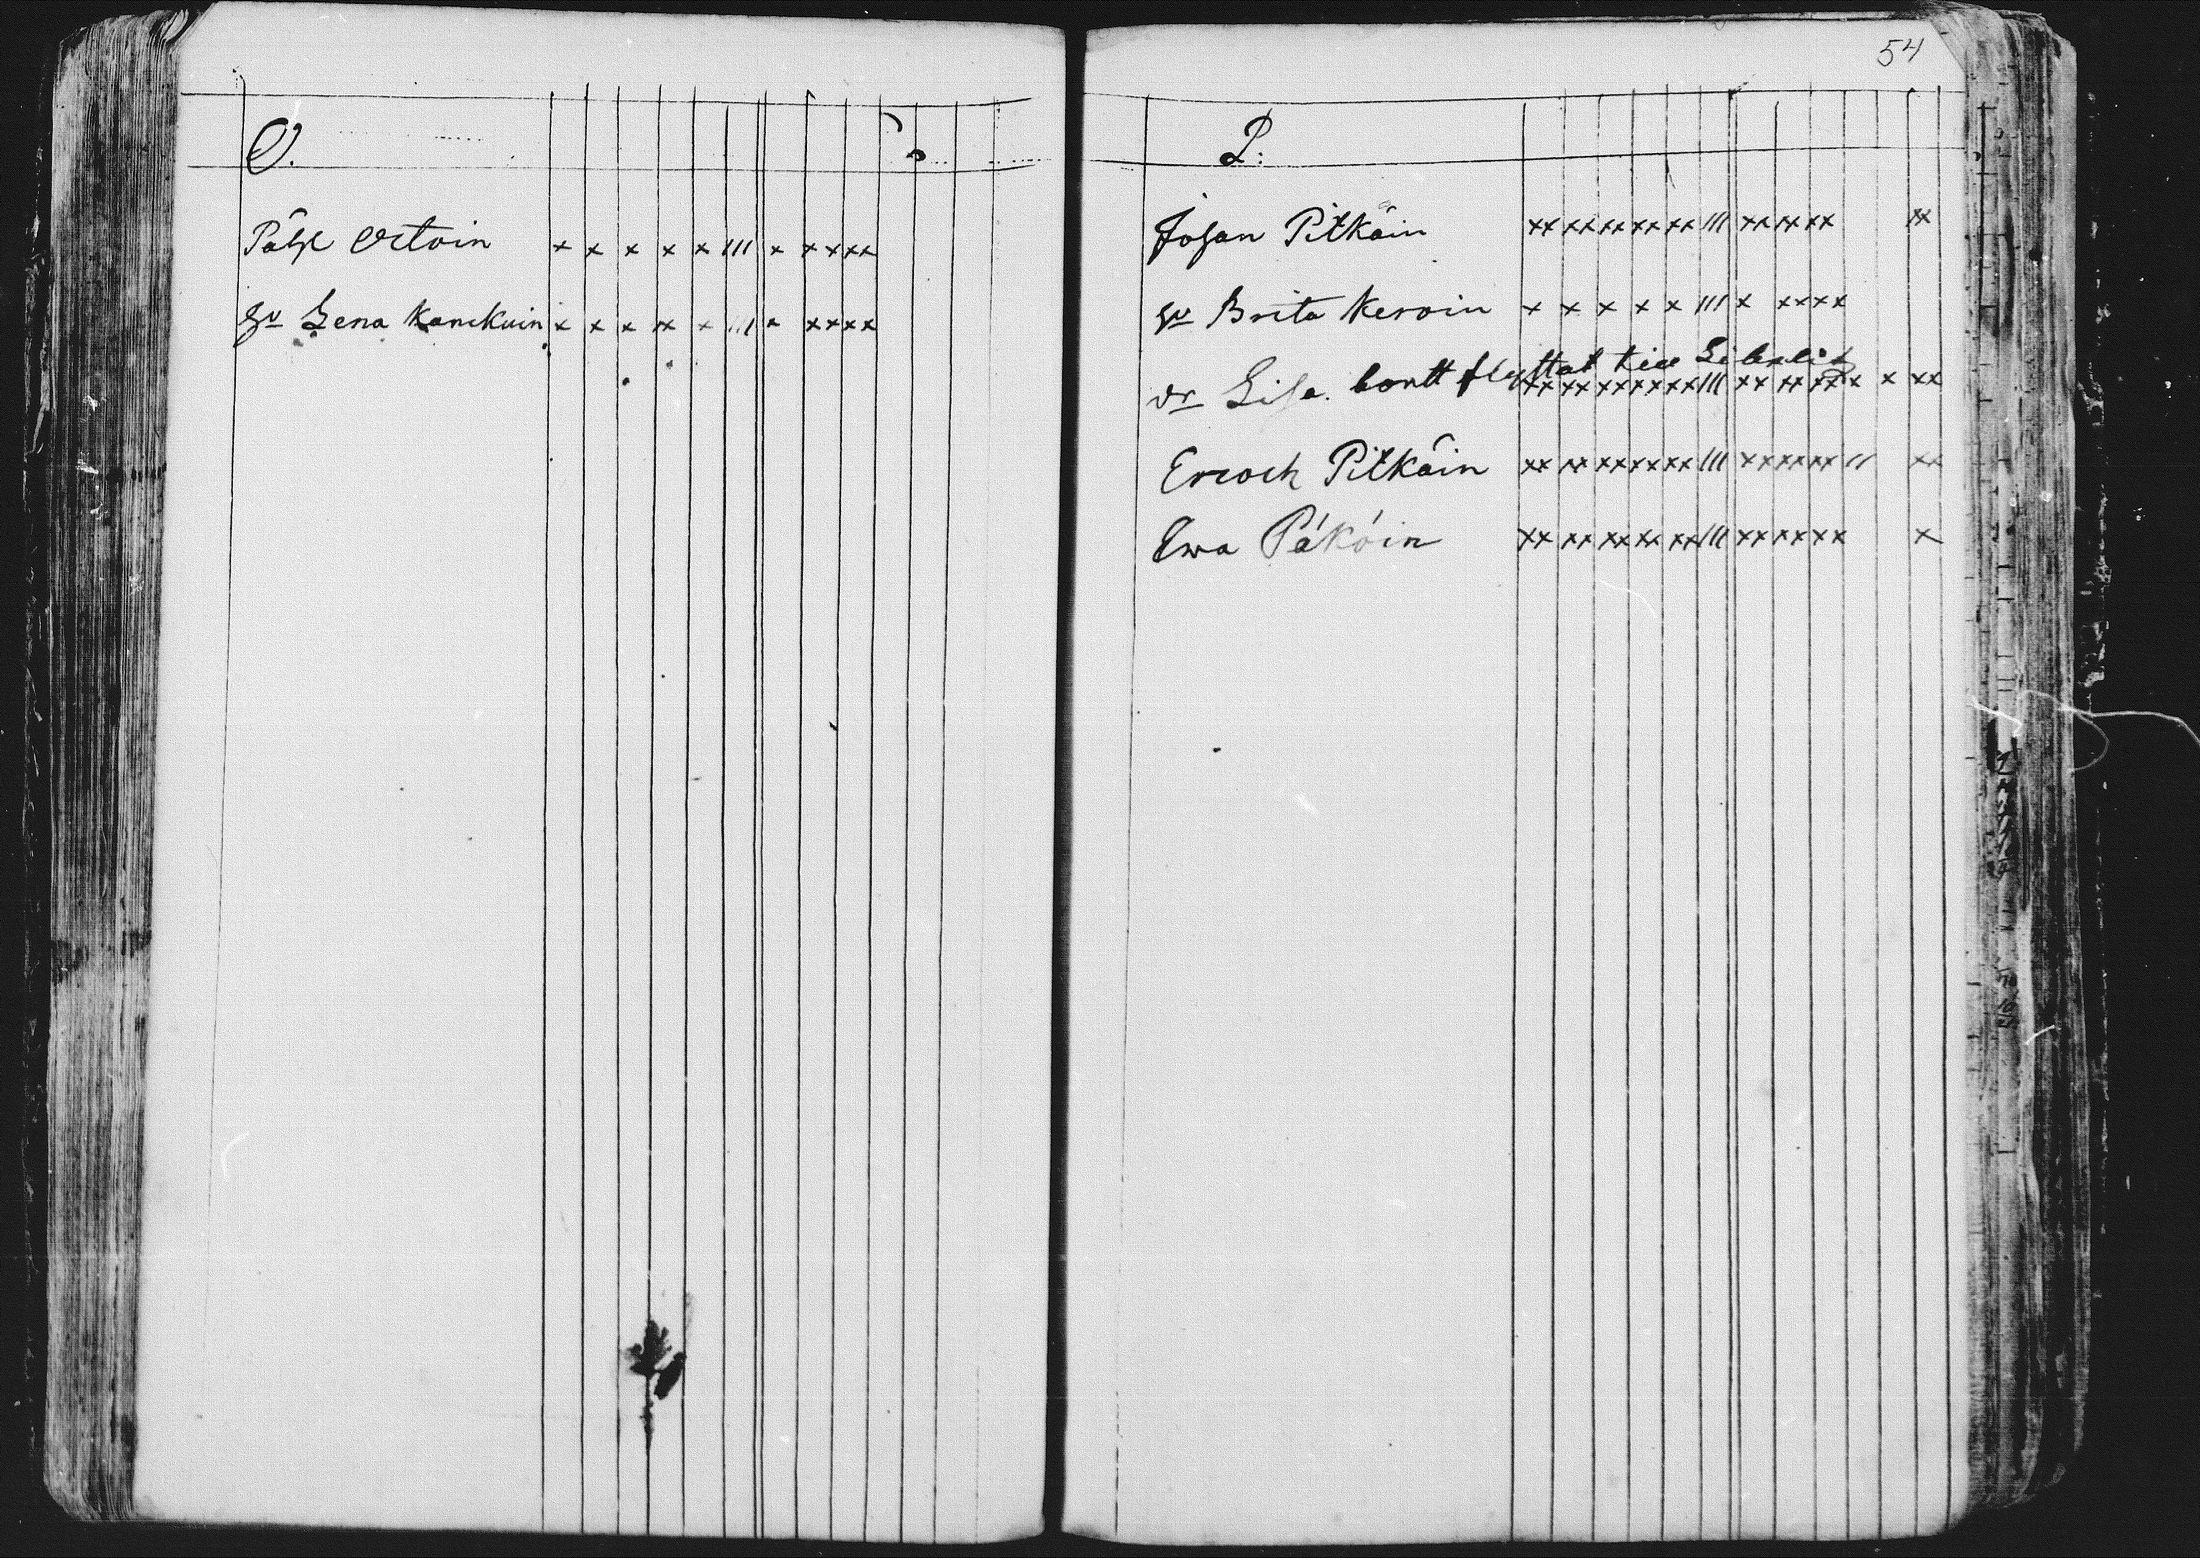 O.
Påhl Ortoin x x x x x /// x x x xx
hu Lena Kanckuin x x x xx x /// x xxxx
54
P:
Johan Pitkäin xx xx xx xx xx /// xx xx xx xx
hu Brita Keroin x x x x x /// x xxxx
dr Lisa. bortt flyttat till
xx xx xx xx xx /// xx xx xx x x xx
Pitkäin xx xx xx xx xx /// xx xx xx // xx
Ewa Påkóin xx xx xx xx xx /// xx xx xx x